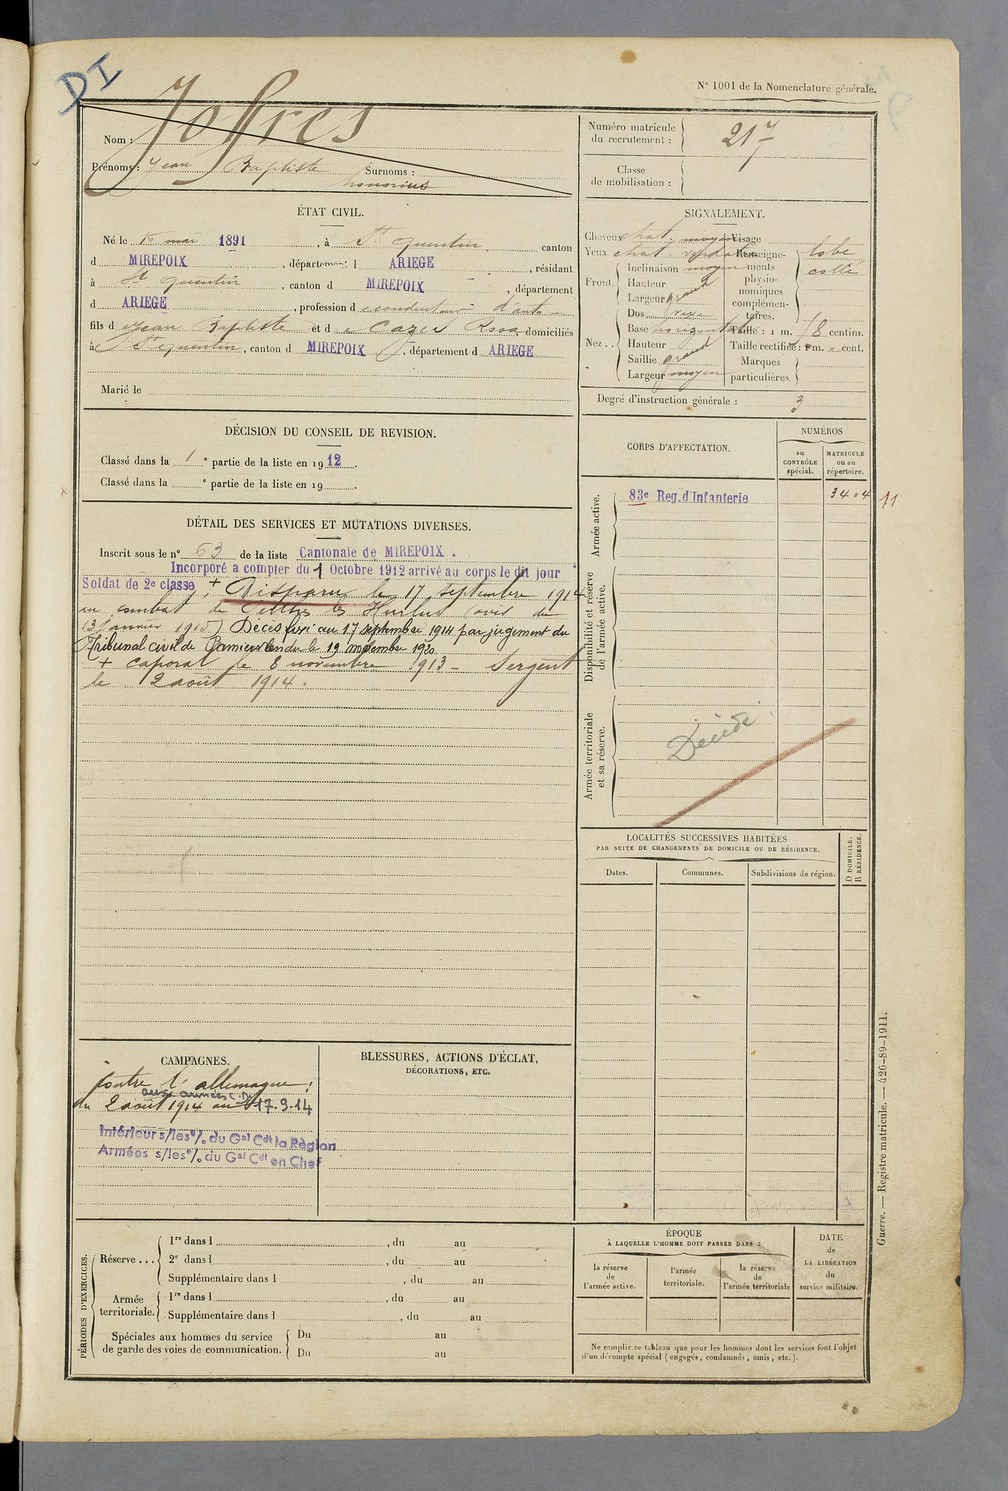 DI
N° 1001 de la Nomenclature générale.
Joffres
Nom :
Prénoms : Jean Baptiste Surnoms :
honorius
Numéro matricule du recrutement : 217
Classe de mobilisation :
ÉTAT CIVIL.
Né le mai 1891, à St quentin canton
d MIREPOIX, département d ARIEGE, résidant
à St quentin, canton d MIREPOIX, département
d ARIEGE, profession de conducteur d'auto
fils de Jean Baptiste et de Cazes Rosa domiciliés
à St quentin, canton d MIREPOIX, département d ARIEGE
Marié le
SIGNALEMENT.
Cheveux chat. moyen Visage
Yeux chat. Renseigne-
Front. Inclinaison moyen ments
Hauteur physio-
Largeur grand nomiques
complémen-
taires.
lobe
collé
Nez.. Dos
Base horizontal Taille : 1 m. 78 centim.
Hauteur Taille rectifiée : 1 m. cent.
Saillie grand Marques
Largeur moyen particulières.
Degré d'instruction générale : 3
DÉCISION DU CONSEIL DE REVISION.
Classé dans la 1e partie de la liste en 1912.
Classé dans la e partie de la liste en 19 .
CORPS D'AFFECTATION.
NUMÉROS
au CONTRÔLE spécial.
MATRICULE ou au répertoire.
Armée active.
83e Reg. d'Infanterie 3404 11
Disponibilité et réserve de l'armée active.
Armée territoriale et sa réserve.
Décédé
DÉTAIL DES SERVICES ET MUTATIONS DIVERSES.
Inscrit sous le n° 63 de la liste Cantonale de MIREPOIX.
Incorporé a compter du 1 Octobre 1912 arrivé au corps le dit jour
Soldat de 2e classe + Disparu le 17 septembre 1914
au combat de Perthes les Hurlus (avis du
13 janvier 1915) Décès fixé au 17 septembre 1914 par jugement du
Tribunal civil de Pamiers rendu le 19 novembre 1920.
+ caporal le 8 novembre 1913 - Sergent
le 2 août 1914.
LOCALITÉS SUCCESSIVES HABITÉES
PAR SUITE DE CHANGEMENTS DE DOMICILE OU DE RÉSIDENCE.
Dates. Communes. Subdivisions de région.
D DOMICILE.
R RÉSIDENCE.
CAMPAGNES.
Contre l'allemagne :
aux armées
du 2 août 1914 au 17-9-14
Intérieur s/les % du Gal Cdt la Région
Armées s/les % du Gal Cdt en Chef
BLESSURES, ACTIONS D'ÉCLAT,
DÉCORATIONS, ETC.
PÉRIODES D'EXERCICES.
Réserve... 1re dans l , du au
2e dans l , du au
Supplémentaire dans l , du au
Armée territoriale. 1re dans l , du au
Supplémentaire dans l , du au
Spéciales aux hommes du service de garde des voies de communication. Du au
Du au
ÉPOQUE
À LAQUELLE L'HOMME DOIT PASSER DANS :
la réserve de l'armée active.
l'armée territoriale.
la réserve de l'armée territoriale
DATE de LA LIBÉRATION du service militaire.
Ne remplir ce tableau que pour les hommes dont les services font l'objet
d'un décompte spécial (engagés, condamnés, omis, etc.).
Guerre. — Registre matricule. — 426-89-1911.